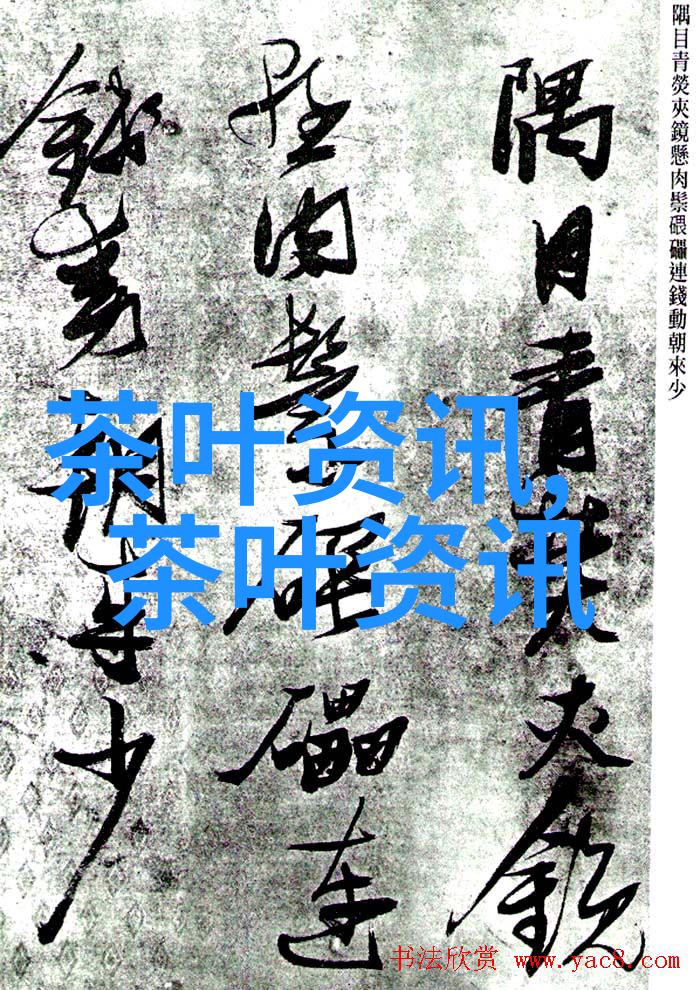 隅目青熒夾鏡懸肉鬃碨礧連錢動朝來少
隅目青熒夾鏡
懸肉鬃碨礧連
錢動朝來少
茶叶资讯,
茶叶资讯
书法欣赏 www.yac8.com